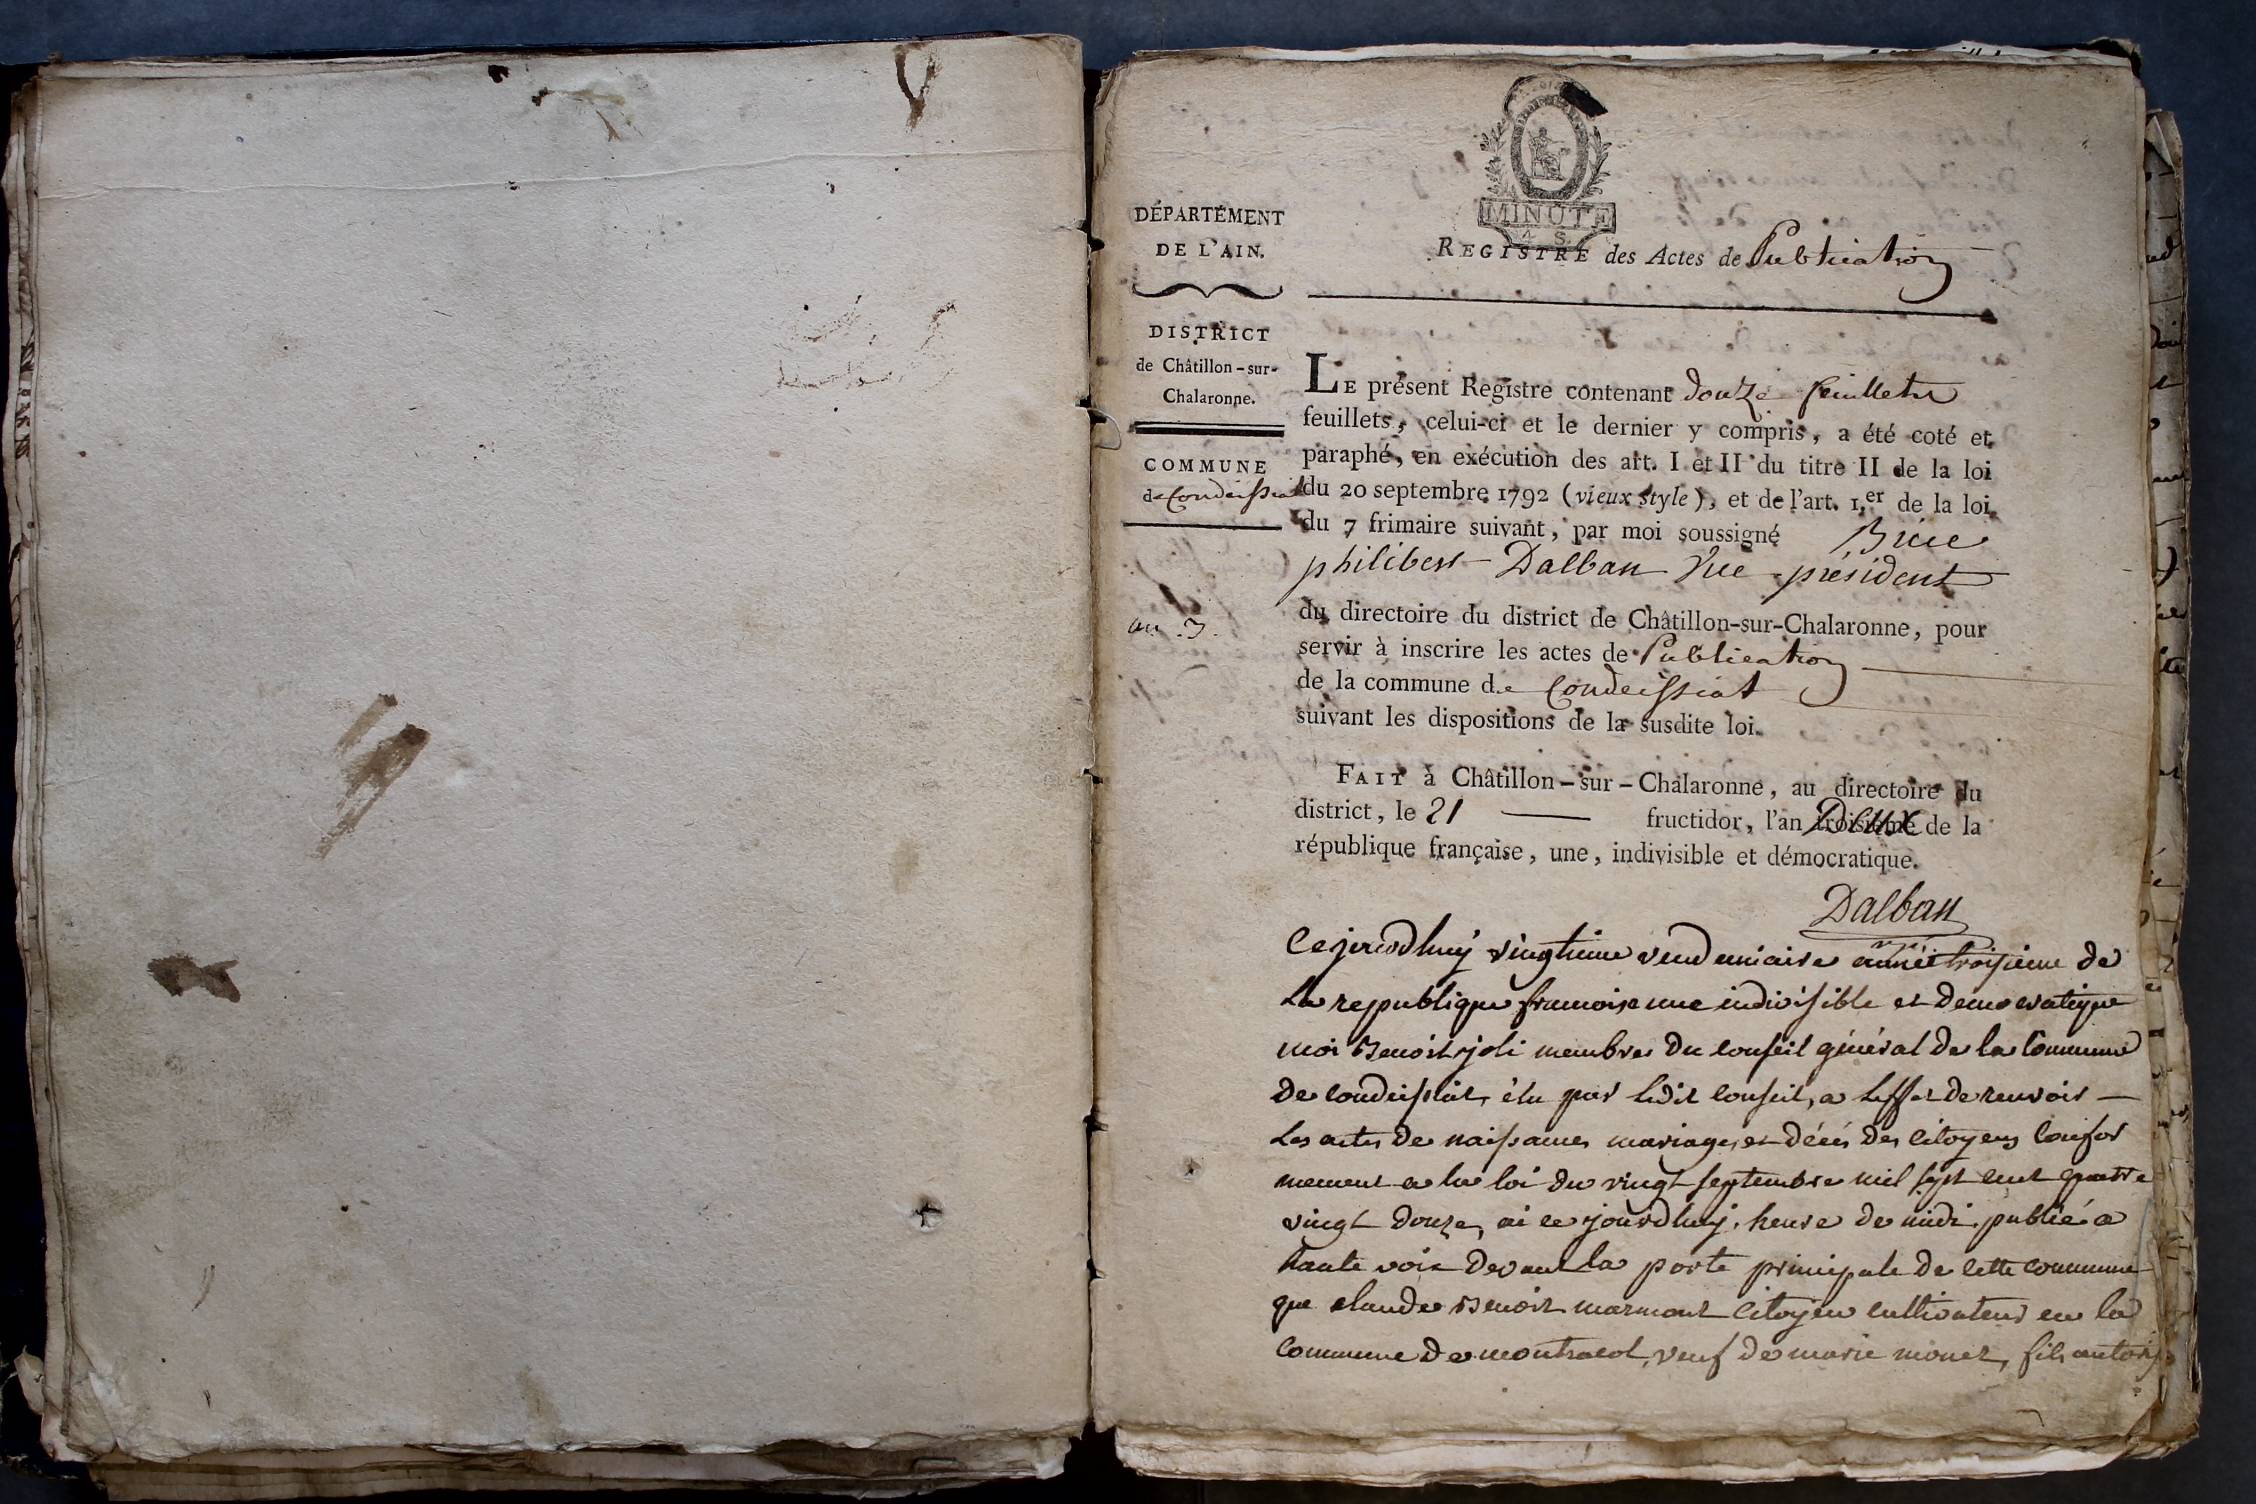 MINUTE
4 S.
DÉPARTEMENT
DE L'AIN.
REGISTRE des Actes de Publication
DISTRICT
de Châtillon-sur-
Chalaronne.
COMMUNE
de Condeissiat
an 3.
LE présent Registre contenant douze feuillets
feuillets, celui-ci et le dernier y compris, a été coté et
paraphé, en exécution des art. I et II du titre II de la loi
du 20 septembre 1792 (vieux style), et de l'art. 1.er de la loi
du 7 frimaire suivant, par moi soussigné Brice
philibert Dalban Vice président
du directoire du district de Châtillon-sur-Chalaronne, pour
servir à inscrire les actes de Publication
de la commune de Condeissiat
suivant les dispositions de la susdite loi.
FAIT à Châtillon-sur-Chalaronne, au directoire du
district, le 21 fructidor, l'an troisième Deux de la
république française, une, indivisible et démocratique.
Dalban
Cejourdhuy vingtieme vendemiaire année troisieme de
La republique francoise une indivisible et democratique
moi Benoit joli membre du conseil général de la Commune
de condeissiat, élu par ledit conseil, a leffet de recevoir
Les actes de naissances mariages et décés des citoyens confor
mement a la loi du vingt septembre mil sept cent quatre
vingt douze, ai ce jourdhuy, heure de midi publié a
haute voix devant la porte principale de cette commune
que claude Benoit marmont citoyen cultivateur en la
Commune de montracol, veuf de marie monet, fils